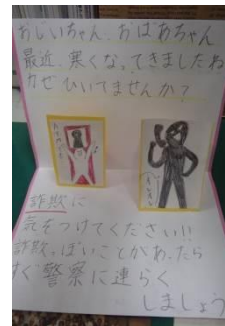 おじいちゃん、おばあちゃん
最近、寒くなってきましたね
カゼひいてませんか?
詐欺に
気をつけてください!!
詐欺っぽいことがあったら
すぐ警察に連らく
しましょう